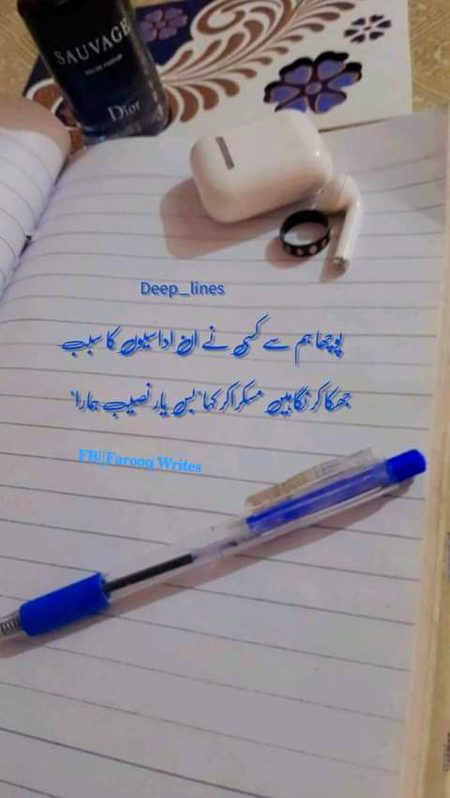 SAUVAGE
EAU DE PARFUM
Dior
Deep_lines
پوچھا ہم سے کسی نے ان اداسیوں کا سبب
جھکا کر نگاہیں مسکرا کر کہا "بس یار نصیب ہمارا"
FB||Farooq Writes